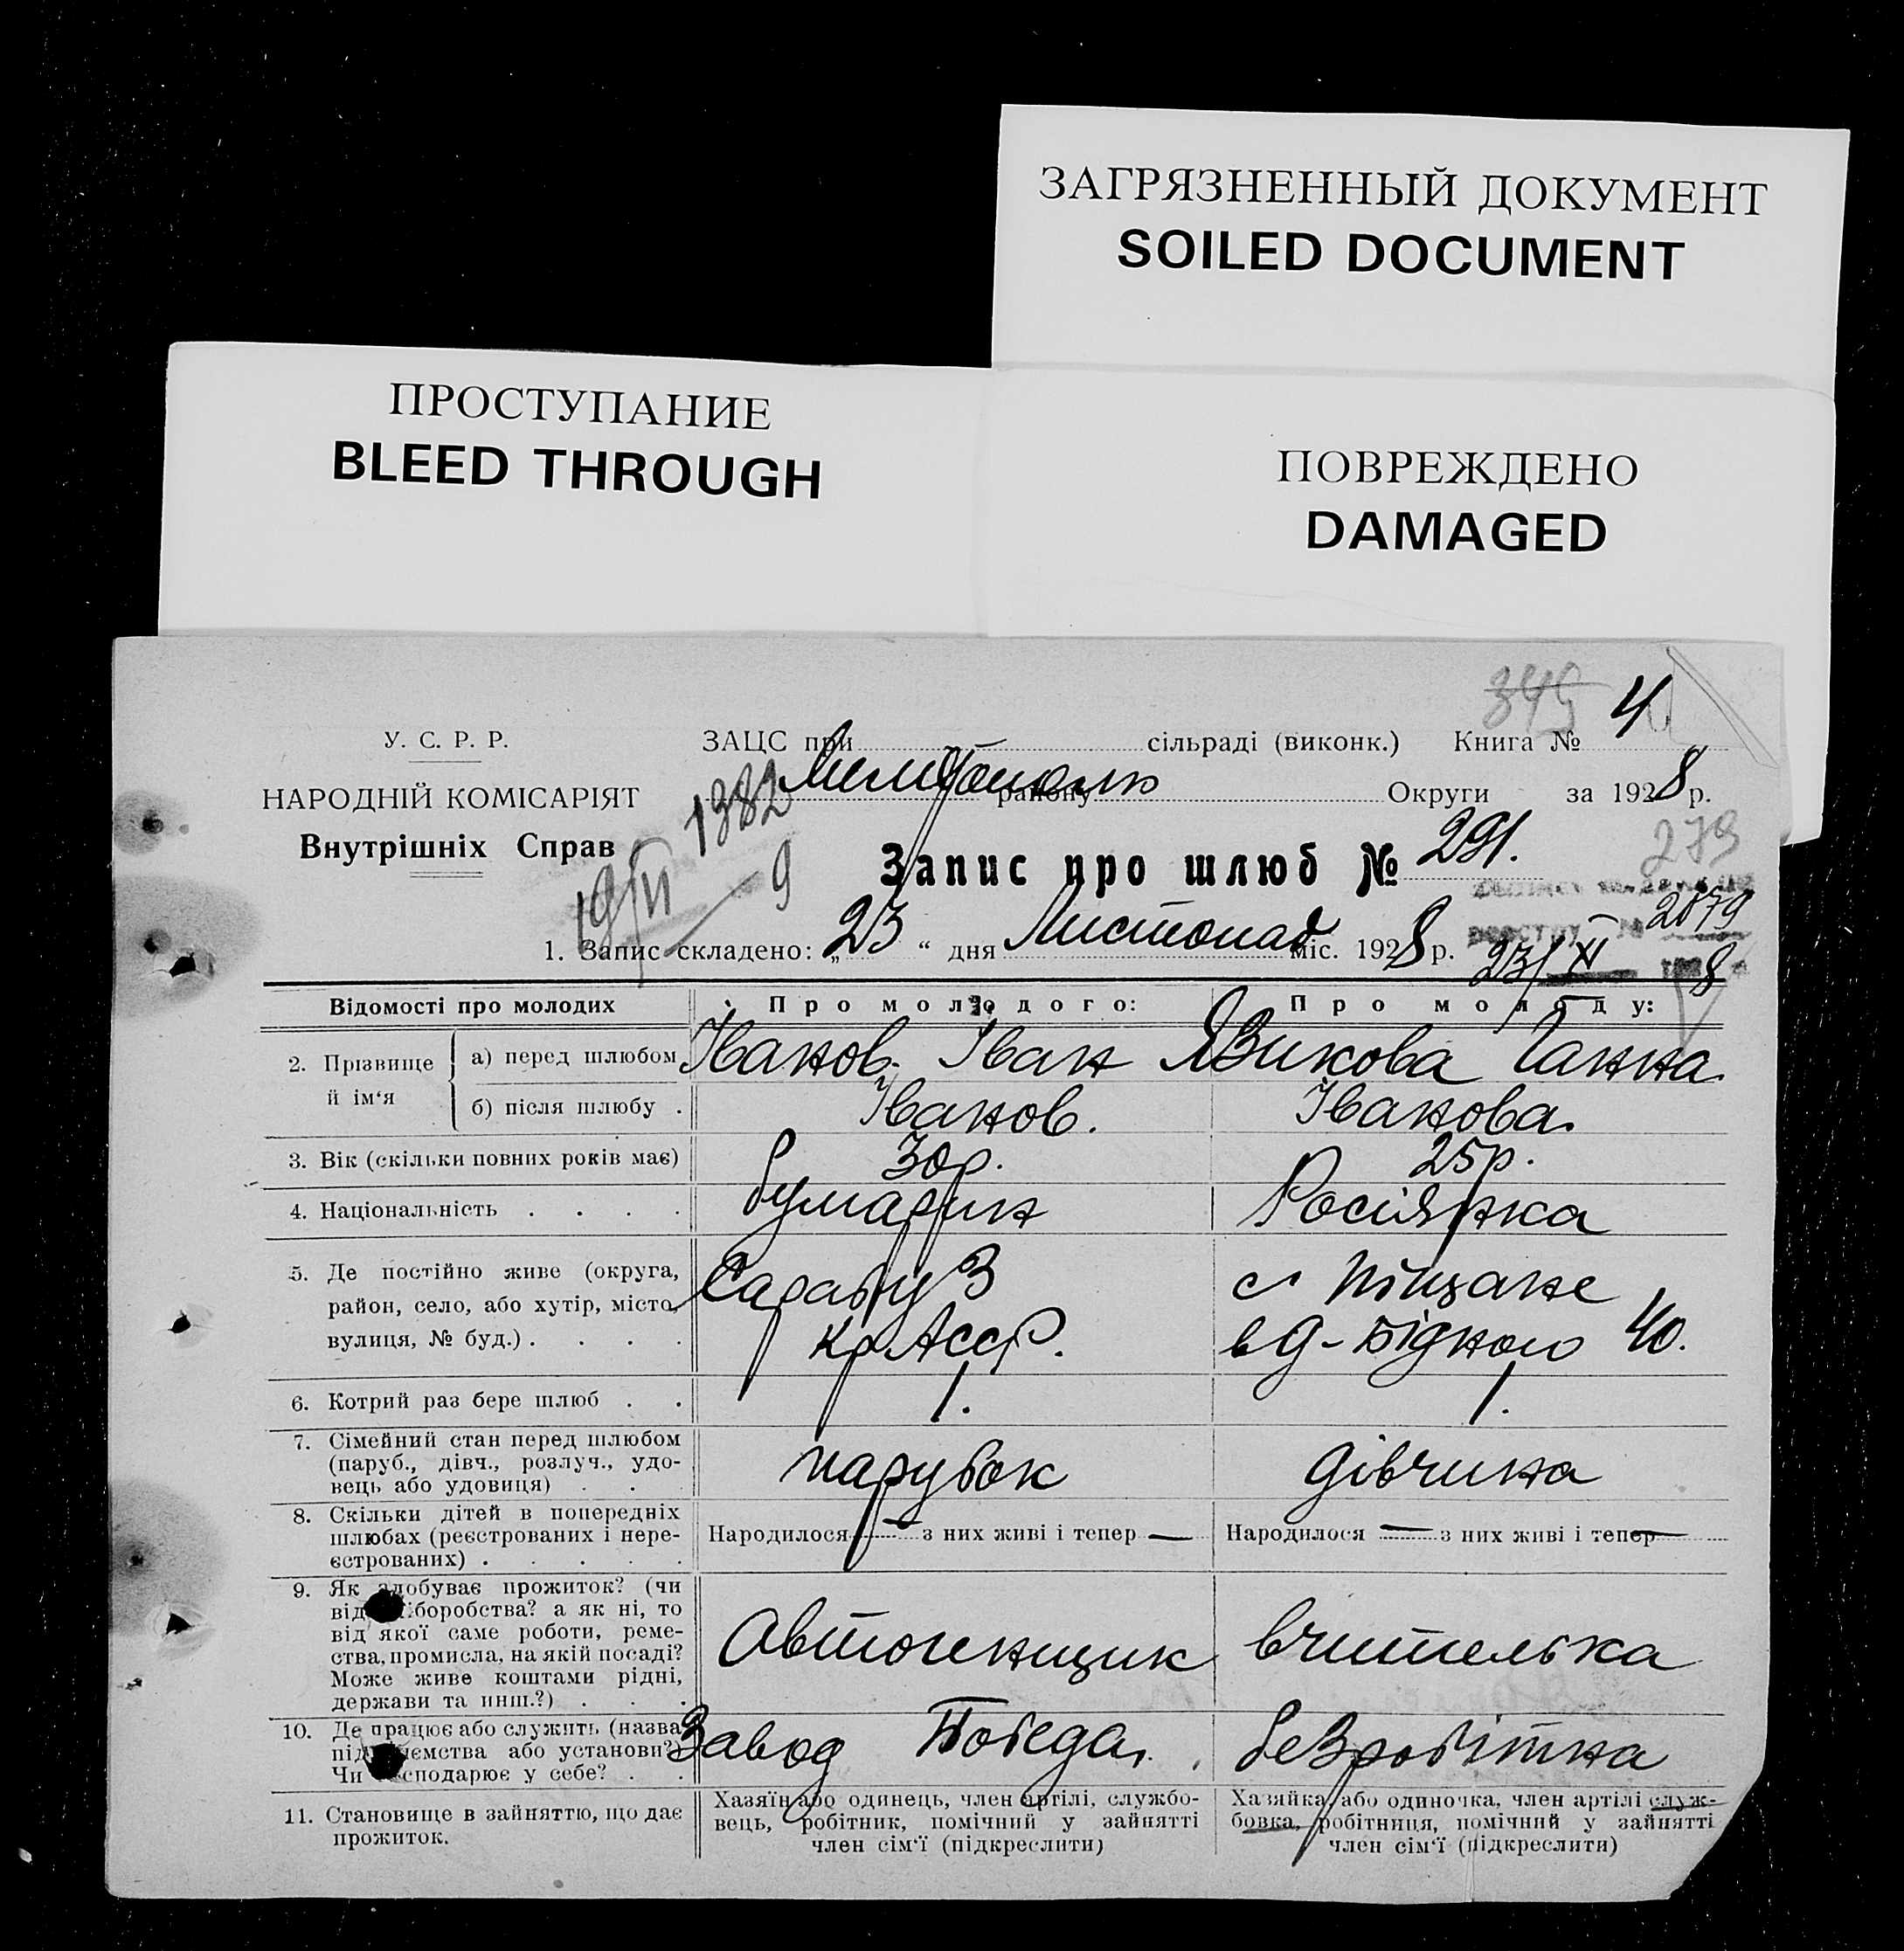 ЗАГРЯЗНЕННЫЙ ДОКУМЕНТ
SOILED DOCUMENT
ПРОСТУПАНИЕ
BLEED THROUGH
ПОВРЕЖДЕНО
DAMAGED
349 4
У. С. Р. Р.
НАРОДНІЙ КОМІСАРІЯТ
Внутрішніх Справ
1382
19/VI 9
ЗАЦС при сільраді (виконк.) Книга №
району Округи за 1928 р.
Запис про шлюб № 291.
279
2879
23/XI 8
1. Запис складено: „23“ дня Листопад міс. 1928 р.
Відомості про молодих Про молодого: Про молоду:
2. Прізвище й ім‘я а) перед шлюбом Іванов Іван Язикова Ганна
б) після шлюбу . Іванов. Іванова.
3. Вік (скільки повних років має) 30 р. 25 р.
4. Національність . . . . Росіянка
5. Де постійно живе (округа, Сарабуз с Піщане
район, село, або хутір, місто, Кр АССР. в Д-Бідного 40.
вулиця, № буд.) . . . .
6. Котрий раз бере шлюб . . 1. 1.
7. Сімейний стан перед шлюбом
(паруб., дівч., розлуч., удо- парубок дівчина
вець або удовиця) . . .
8. Скільки дітей в попередніх
шлюбах (реєстрованих і нере- Народилося — з них живі і тепер — Народилося — з них живі і тепер —
єстрованих) . . . . .
9. Як здобуває прожиток? (чи
від хліборобства? а як ні, то
від якої саме роботи, реме- Автогенщик вчителька
ства, промисла, на якій посаді?
Може живе коштами рідні,
держави та инш.?) . . .
10. Де працює або служить (назва Завод Победа. безробітна
підприємства або установи?)
Чи господарює у себе? . .
11. Становище в зайняттю, що дає
прожиток.
Хазяїн або одинець, член артілі, службо-
вець, робітник, помічний у зайнятті
член сім‘ї (підкреслити)
Хазяйка або одиночка, член артілі служ-
бовка, робітниця, помічний у зайнятті
член сім‘ї (підкреслити)